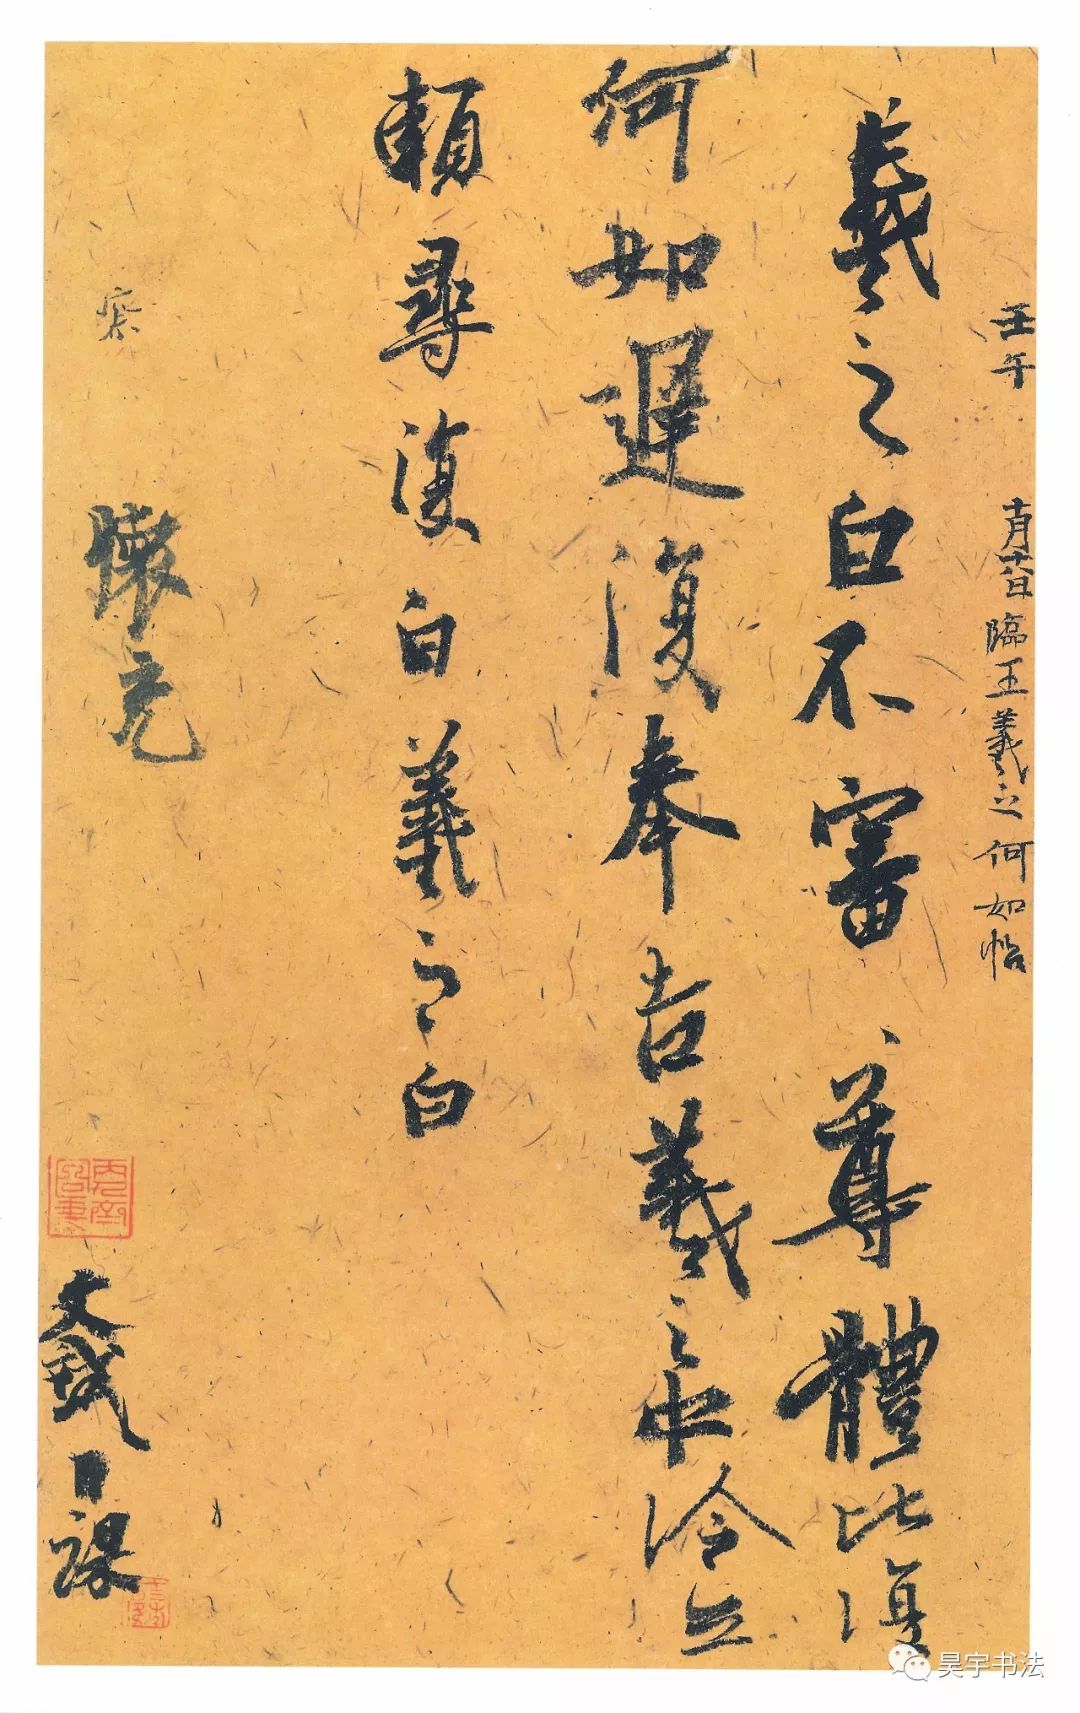 壬午 十月十六日臨王羲之何如帖
羲之白不審尊體比復
何如遲復奉告羲之中冷無
賴尋復白羲之白
察
懷充
日課
昊宇书法